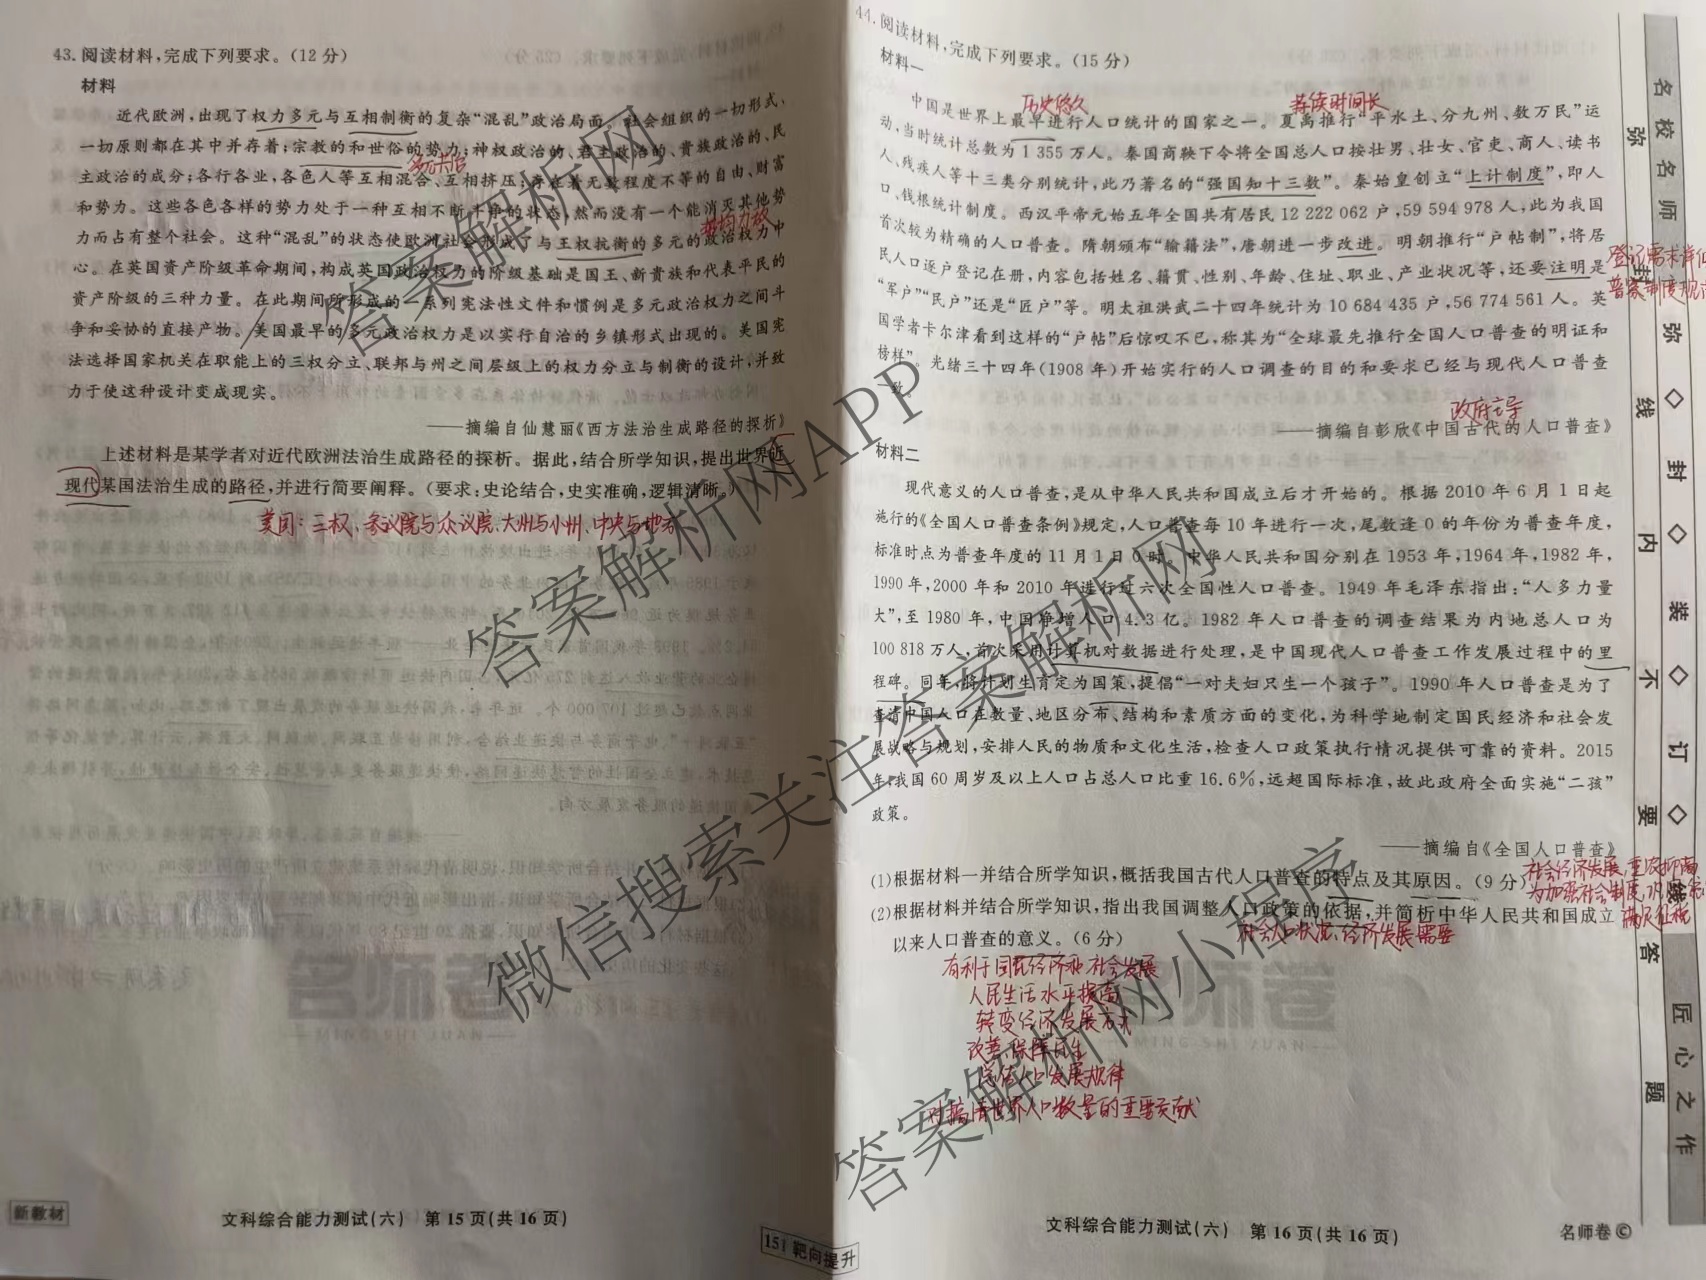 43. 阅读材料,完成下列要求。(12分)
材料
近代欧洲,出现了权力多元与互相制衡的复杂“混乱”政治局面。社会组织的一切形式、
一切原则都在其中并存着;宗教的和世俗的势力;神权政治的、君主政治的、贵族政治的、民
多元共治
主政治的成分;各行各业,各色人等互相混合、互相挤压;存在着无数程度不等的自由、财富
和势力。这些各色各样的势力处于一种互相不断斗争的状态,然而没有一个能消灭其他势
势均力敌
力而占有整个社会。这种“混乱”的状态使欧洲社会形成了与王权抗衡的多元的政治权力中
心。在英国资产阶级革命期间,构成英国政治权力的阶级基础是国王、新贵族和代表平民的
资产阶级的三种力量。在此期间所形成的一系列宪法性文件和惯例是多元政治权力之间斗
争和妥协的直接产物。美国最早的多元政治权力是以实行自治的乡镇形式出现的。美国宪
法选择国家机关在职能上的三权分立、联邦与州之间层级上的权力分立与制衡的设计,并致
力于使这种设计变成现实。
——摘编自仙慧丽《西方法治生成路径的探析》
上述材料是某学者对近代欧洲法治生成路径的探析。据此,结合所学知识,提出世界近
现代某国法治生成的路径,并进行简要阐释。(要求:史论结合,史实准确,逻辑清晰。)
美国:三权、参议院与众议院、大州与小州、中央与地方
新教材
文科综合能力测试(六) 第15页(共16页)
44. 阅读材料,完成下列要求。(15分)
材料一
历史悠久
持续时间长
中国是世界上最早进行人口统计的国家之一。夏禹推行“平水土、分九州、数万民”运
动,当时统计总数为1 355万人。秦国商鞅下令将全国总人口按壮男、壮女、官吏、商人、读书
人、残疾人等十三类分别统计,此乃著名的“强国知十三数”。秦始皇创立“上计制度”,即人
口、钱粮统计制度。西汉平帝元始五年全国共有居民12 222 062户,59 594 978人,此为我国
首次较为精确的人口普查。隋朝颁布“输籍法”,唐朝进一步改进。明朝推行“户帖制”,将居
民人口逐户登记在册,内容包括姓名、籍贯、性别、年龄、住址、职业、产业状况等,还要注明是
“军户”“民户”还是“匠户”等。明太祖洪武二十四年统计为10 684 435户,56 774 561人。英
国学者卡尔津看到这样的“户帖”后惊叹不已,称其为“全球最先推行全国人口普查的明证和
榜样”。光绪三十四年(1908年)开始实行的人口调查的目的和要求已经与现代人口普查
一致。
政府主导
——摘编自彭欣《中国古代的人口普查》
材料二
现代意义的人口普查,是从中华人民共和国成立后才开始的。根据2010年6月1日起
施行的《全国人口普查条例》规定,人口普查每10年进行一次,尾数逢0的年份为普查年度,
标准时点为普查年度的11月1日0时。中华人民共和国分别在1953年,1964年,1982年,
1990年,2000年和2010年进行过六次全国性人口普查。1949年毛泽东指出:“人多力量
大”,至1980年,中国净增人口4.3亿。1982年人口普查的调查结果为内地总人口为
100 818万人,首次采用计算机对数据进行处理,是中国现代人口普查工作发展过程中的里
程碑。同年,将计划生育定为国策,提倡“一对夫妇只生一个孩子”。1990年人口普查是为了
查清中国人口在数量、地区分布、结构和素质方面的变化,为科学地制定国民经济和社会发
展战略与规划,安排人民的物质和文化生活,检查人口政策执行情况提供可靠的资料。2015
年,我国60周岁及以上人口占总人口比重16.6%,远超国际标准,故此政府全面实施“二孩”
政策。
——摘编自《全国人口普查》
(1)根据材料一并结合所学知识,概括我国古代人口普查的特点及其原因。(9分)
(2)根据材料并结合所学知识,指出我国调整人口政策的依据,并简析中华人民共和国成立
以来人口普查的意义。(6分)
社会人口状况、经济发展需要
有利于国民经济和社会发展
人民生活水平提高
转变经济发展方式
改善、保障民生
总结人口发展规律
对搞清世界人口数量的重要贡献
社会经济发展,重农抑商
为加强社会制度
满足征税
151 靶向提升
文科综合能力测试(六) 第16页(共16页)
名师卷©
名校名师
匠心之作
弥封线内不要答题
弥◇封◇装◇订◇线
名师卷
MING SHI JUAN
名师卷
MING SHI JUAN
答案解析网
微信搜索关注答案解析网APP
答案解析网
答案解析网小程序